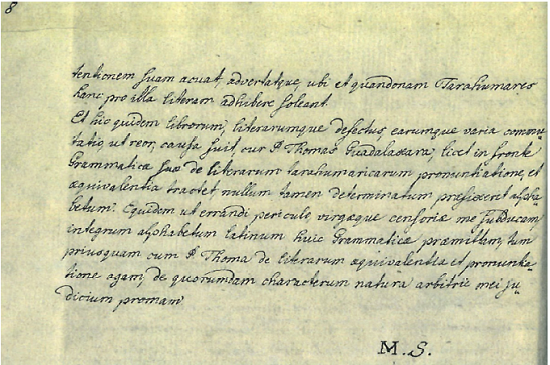 8
tentionem suam acuat, advertatque, ubi et quandonam Tarahumares
hanc pro illa literam adhibere soleant.
Et hic quidem librorum, literarumque defectus, earumque varia commu-
tatio, ut reor, causa fuit, cur P. Thomas Guadalaxara, licet in fronte
Grammaticæ suæ de literarum tarahumaricarum pronuntiatione, et
æquivalentia tractet nullum tamen determinatum prefixerit alpha-
betum. Equidem ut errandi periculo, virgæque censoriæ me subducam,
integrum alphabetum latinum huic Grammaticæ præmittam, tum
priusquam cum P. Thoma de literarum æquivalentia et pronuntia-
tione agam, de quorumdam characterum natura arbitrii mei ju-
dicium promam
M. S.